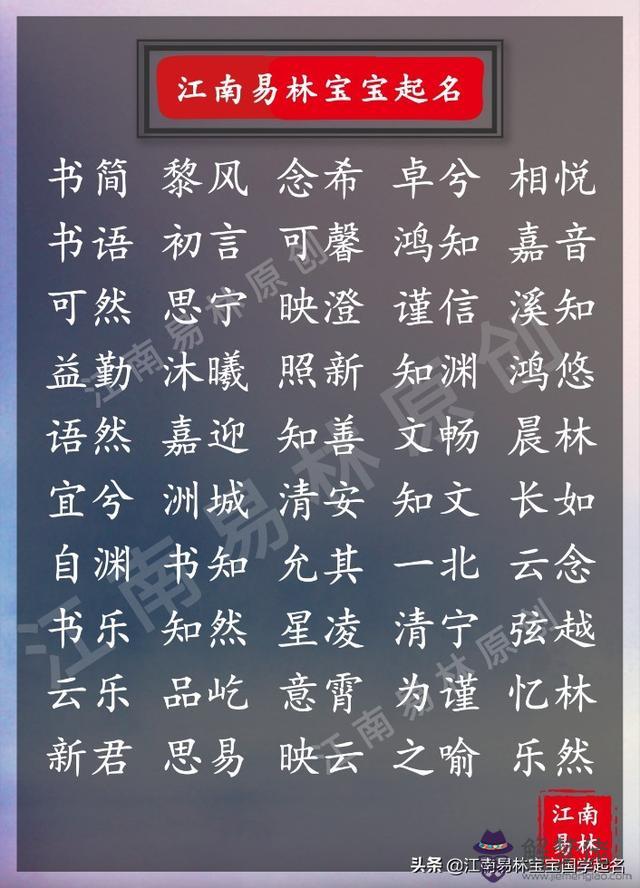 江南易林宝宝起名
书简 黎风 念希 卓兮 相悦
书语 初言 可馨 鸿知 嘉音
可然 思宁 映澄 谨信 溪知
益勤 沐曦 照新 知渊 鸿悠
语然 嘉迎 知善 文畅 晨林
宜兮 洲城 清安 知文 长如
自渊 书知 允其 一北 云念
书乐 知然 星凌 清宁 弦越
云乐 品屹 意霄 为谨 忆林
新君 思易 映云 之喻 乐然
江南易林原创
江南易林原创
江南易林原创
江南
易林
头条 @江南易林宝宝国学起名